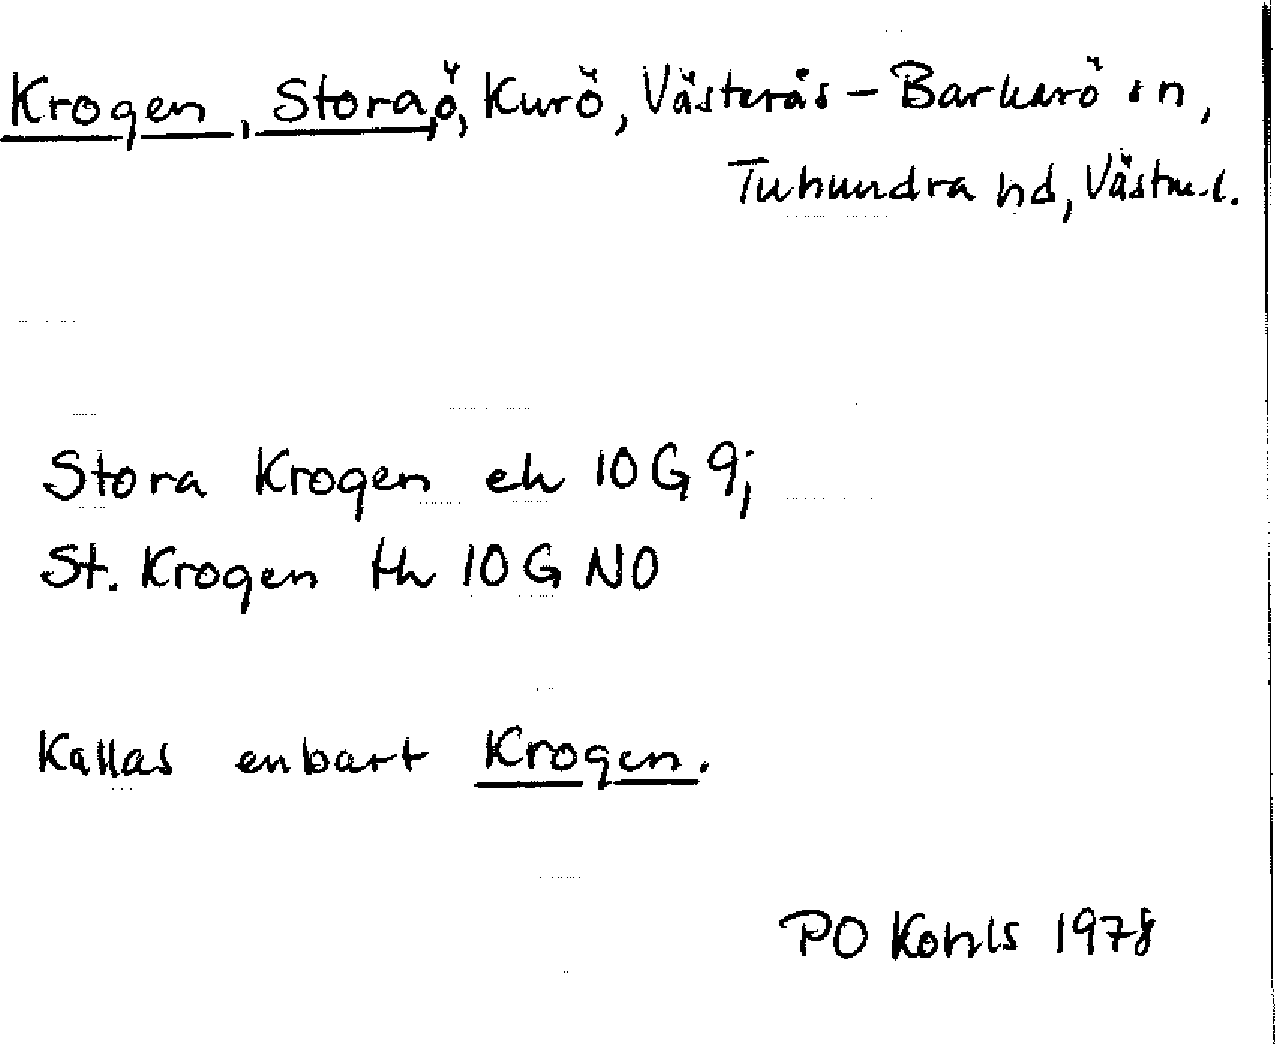 Krogen, Stora, ö, Kurö, Västerås-Barkarö sn,
Tuhundra hd, Västm.l.
Stora Krogen ek 10G 9j
St. Krogen tk 10G NO
Kallas enbart Krogen.
PO Kohls 1978